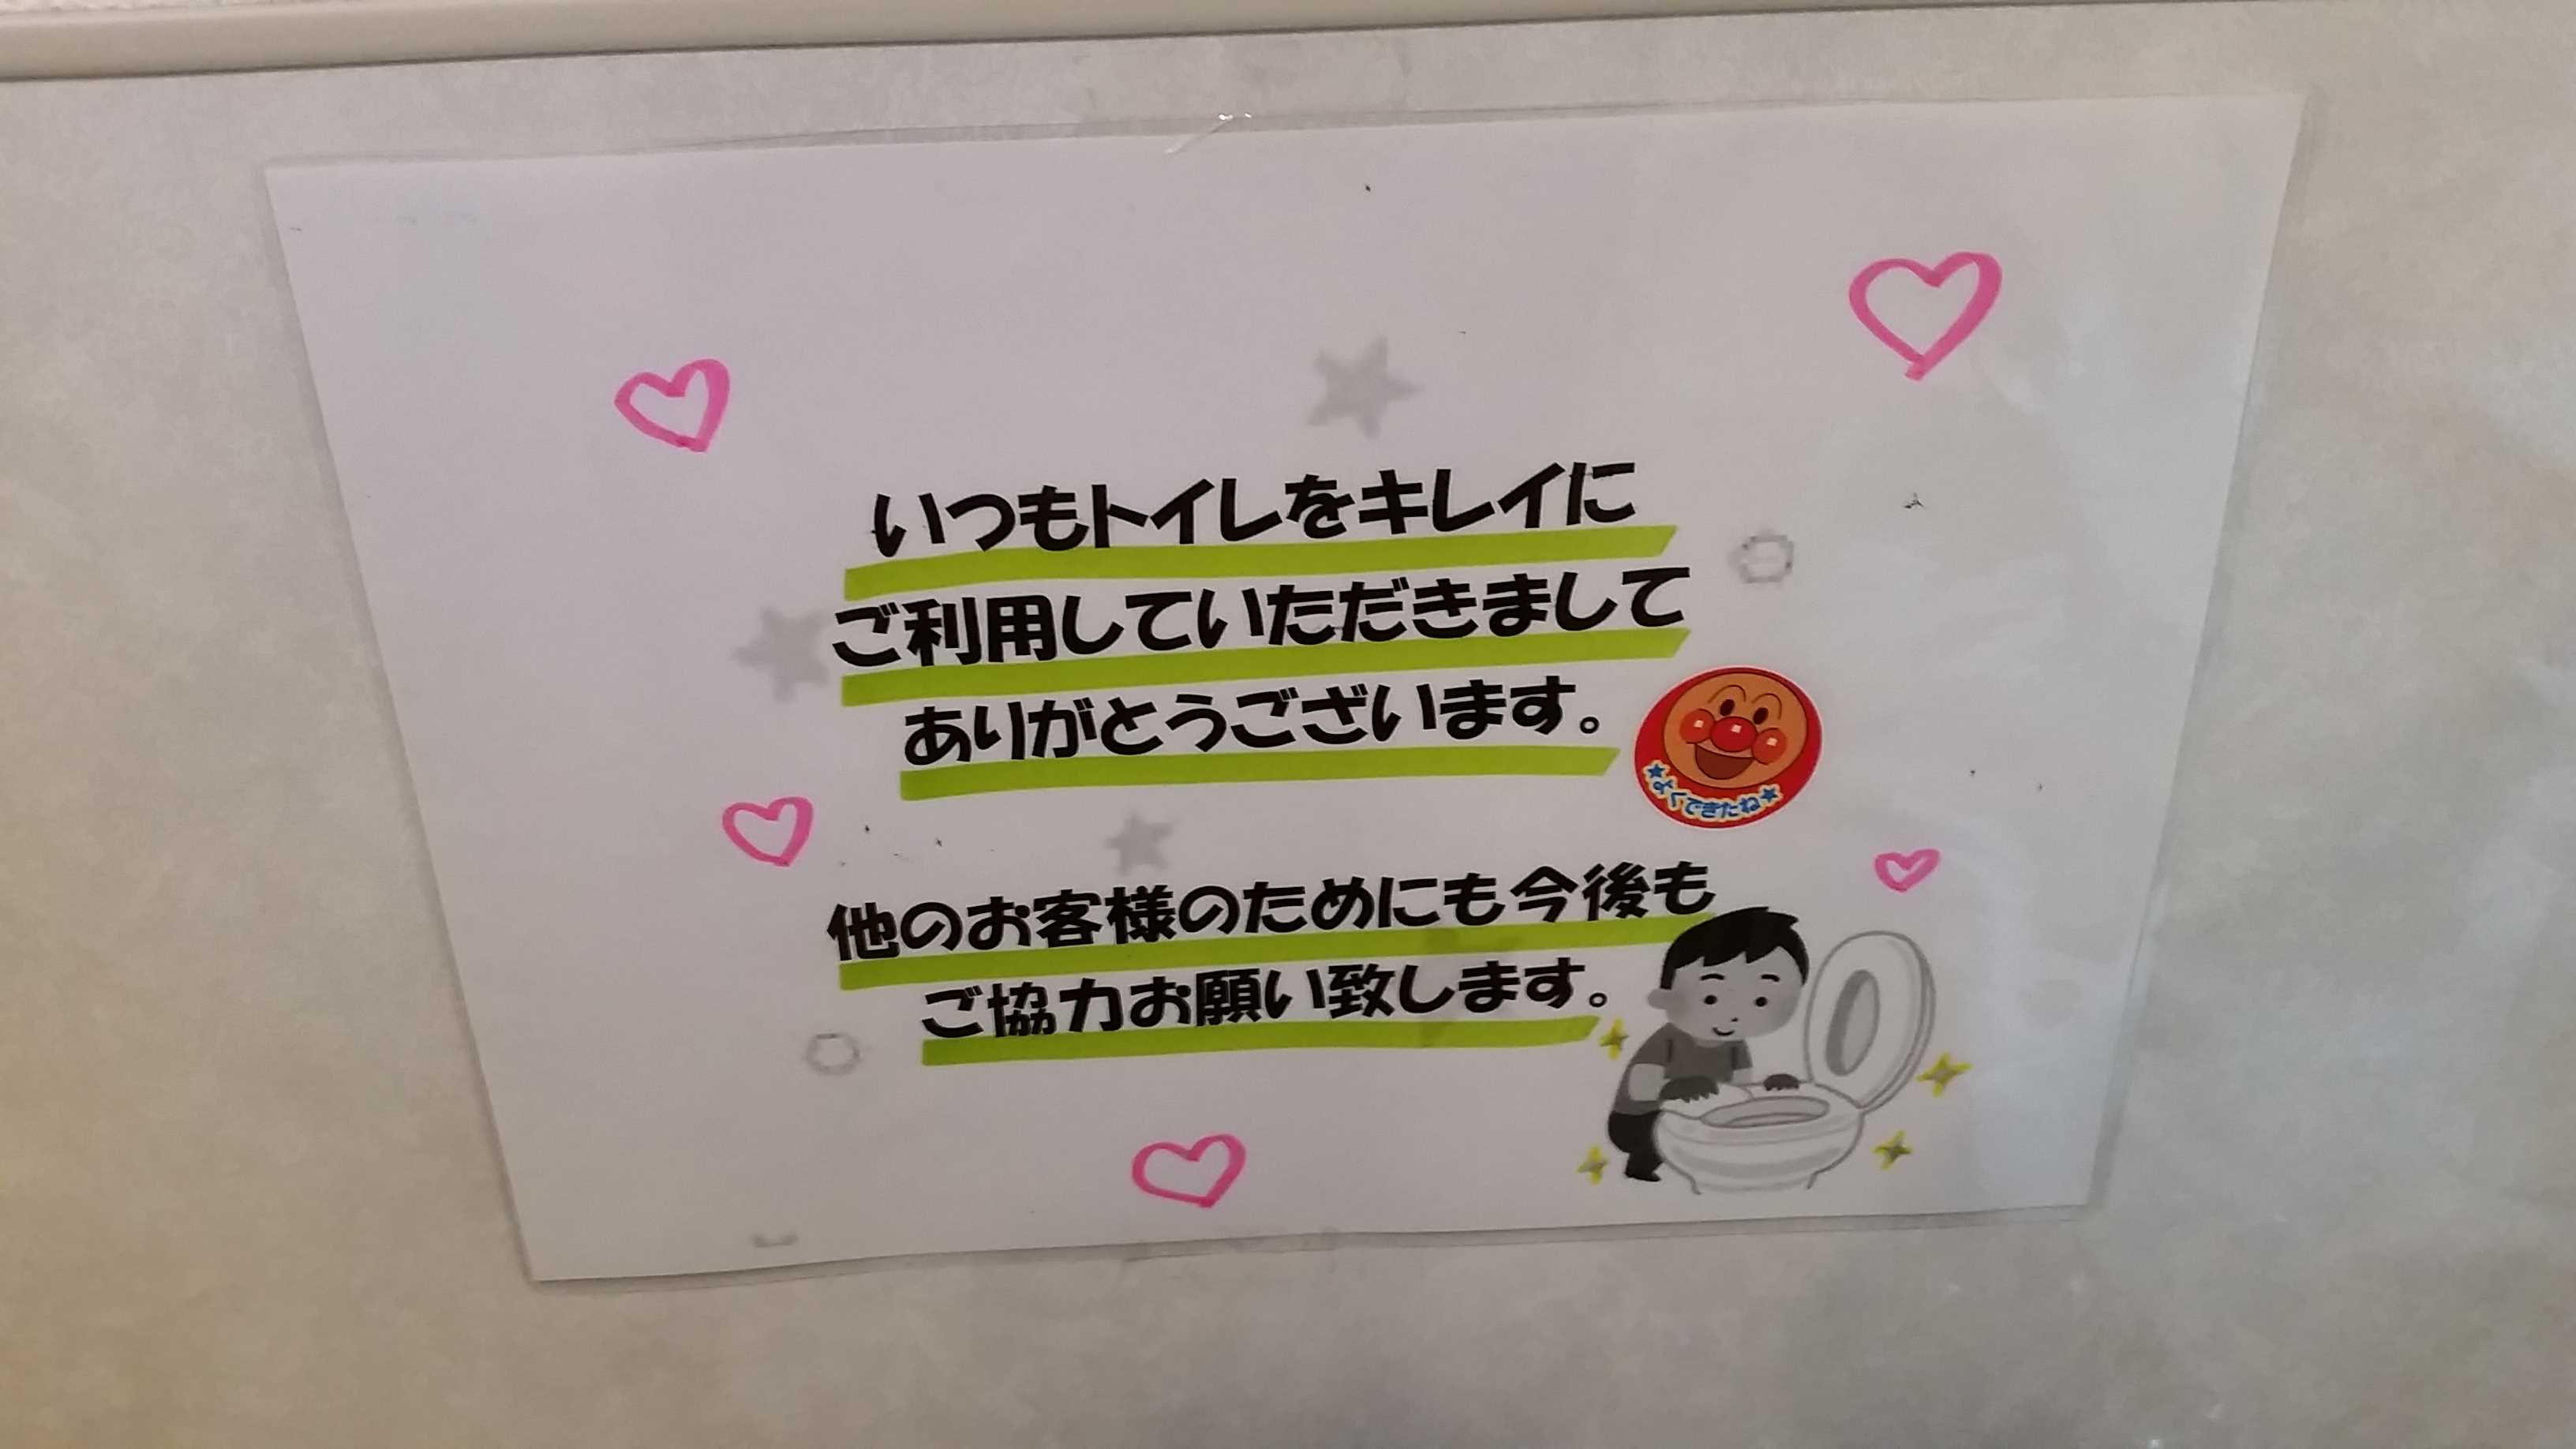 いつもトイレをキレイに
ご利用していただきまして
ありがとうございます。
★よくできたね★
他のお客様のためにも今後も
ご協力お願い致します。